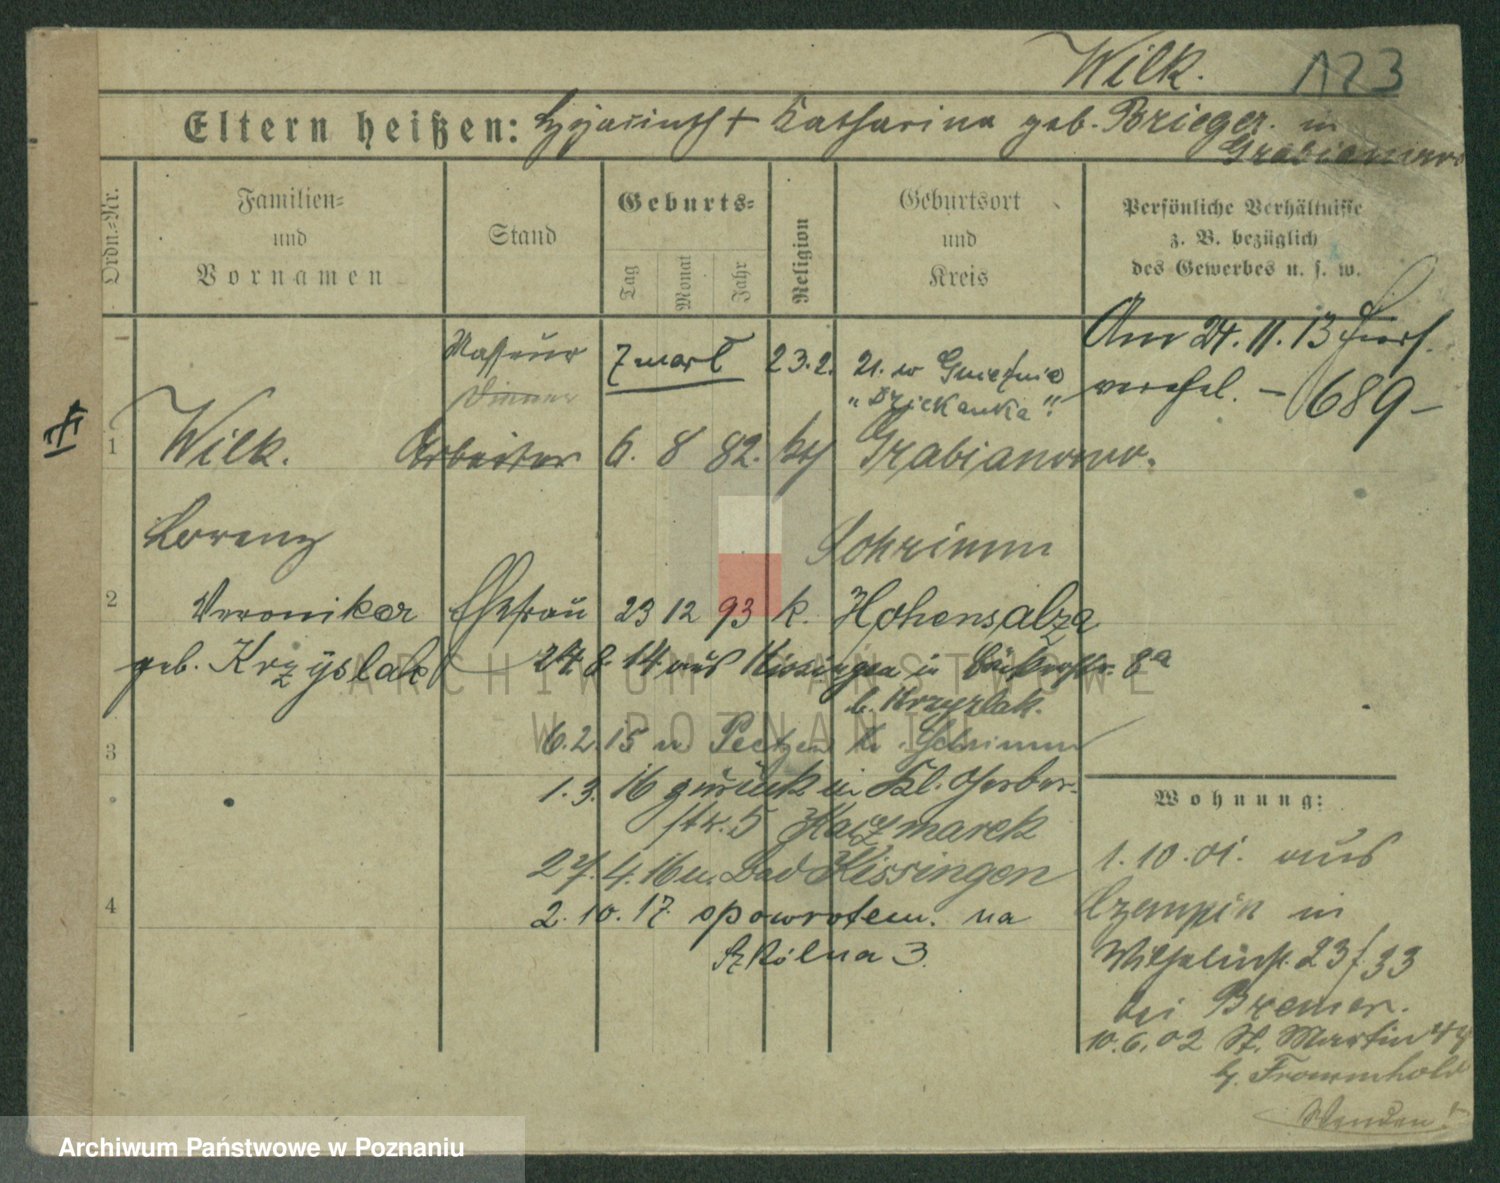 Wilk. 123
Eltern heißen: Hyacinth + Katharina geb. Brieger. in
Grabianowo
Ordn.-Nr.
Familien-
und
Vornamen
Stand
Geburts-
Tag
Monat
Jahr
Religion
Geburtsort
und
Kreis
Persönliche Verhältnisse
z. B. bezüglich
des Gewerbes u. s. w.
Masseur
Diener
Zmarł 23.2. 21. w Gnieźnie
"Dziekanka"
Am 24.11.13
verehel. – 689 –
1 Wilk. Arbeiter 6. 8 82. kth Grabianowo.
Lorenz Schrimm
2 Veronika Ehefrau 23 12 93 k. Hohensalza
geb. Krzyślak
24. 8. 14 aus Kissingen in Bäckerstr. 8a
b. Krzyzlak.
3
6. 2. 15 n Peetzen Kr. Schrimm
1. 3. 16 zurück in Kl. Gerber-
str. 5 Kaczmarek
27. 4. 16 n. Bad Kissingen
4
2. 10. 17. spowrotem. na
Szkólna 3.
Wohnung:
1. 10. 01. aus
Czempin in
Wilhelmst. 23/33
bei Bremer.
10. 6. 02 St. Martin 44
b. Frommhold
Wenden!
ARCHIWUM PAŃSTWOWE
W POZNANIU
Archiwum Państwowe w Poznaniu